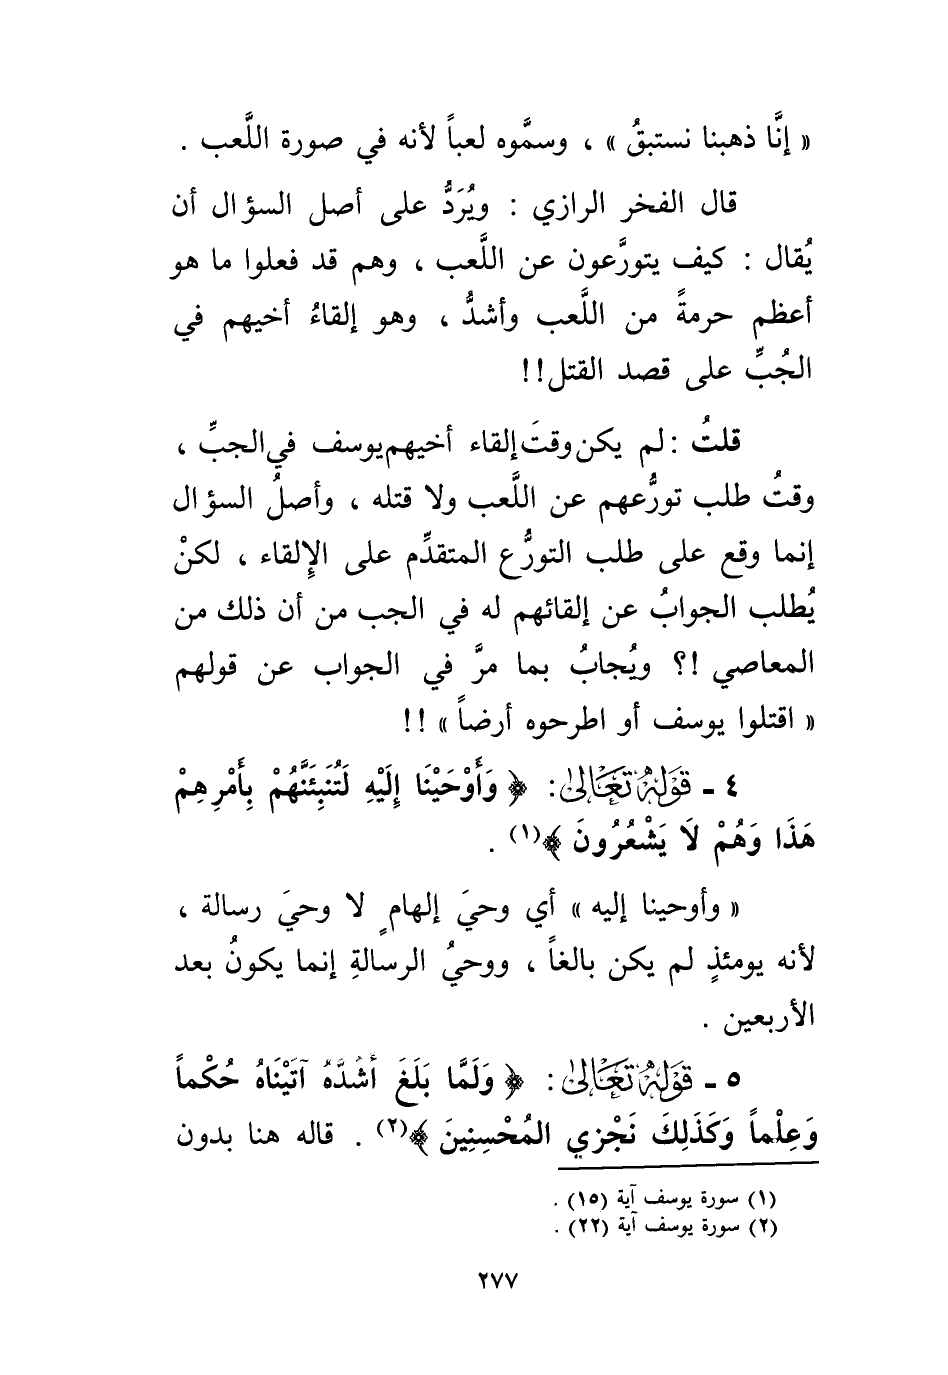 « إنَّا ذهبنا نستبقُ » ، وسمَّوه لعباً لأنه في صورة اللَّعب .
قال الفخر الرازي : ويُرَدُّ على أصل السؤال أن
يُقال : كيف يتورَّعون عن اللَّعب ، وهم قد فعلوا ما هو
أعظم حرمةً من اللَّعب وأشدُّ ، وهو إلقاءُ أخيهم في
الجُبِّ على قصد القتل!!
قلتُ : لم يكن وقتَ إلقاء أخيهم يوسف في الجبِّ ،
وقتُ طلب تورُّعهم عن اللَّعب ولا قتله ، وأصلُ السؤال
إنما وقع على طلب التورُّع المتقدِّم على الإلقاء ، لكنْ
يُطلب الجوابُ عن إلقائهم له في الجب من أن ذلك من
المعاصي !؟ ويُجابُ بما مرَّ في الجواب عن قولهم
« اقتلوا يوسف أو اطرحوه أرضاً » !!
٤ ـ قَوْلُهُ تَعَالَىٰ : ﴿ وَأَوْحَيْنَا إِلَيْهِ لَتُنَبِئَنَّهُمْ بِأَمْرِهِمْ
هَذَا وَهُمْ لَا يَشْعُرُونَ ﴾(١) .
« وأوحينا إليه » أي وحيَ إلهامٍ لا وحيَ رسالة ،
لأنه يومئذٍ لم يكن بالغاً ، ووحيُ الرسالةِ إنما يكونُ بعد
الأربعين .
٥ ـ قَوْلُهُ تَعَالَىٰ : ﴿ وَلَمَّا بَلَغَ أَشُدَّهُ آتَيْنَاهُ حُكْماً
وَعِلْماً وَكَذَلِكَ نَجْزِي المُحْسِنِينَ ﴾(٢) . قاله هنا بدون
(١) سورة يوسف آية (١٥) .
(٢) سورة يوسف آية (٢٢) .
٢٧٧